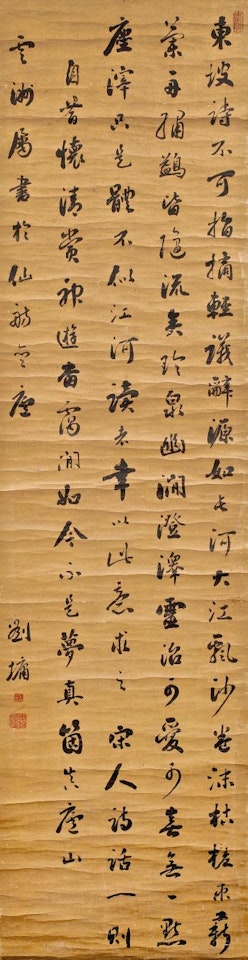 東坡詩不可指摘輕議辭源如長河大江飄沙卷沫枯槎束薪
蘭舟繡鷁皆隨流矣珍泉幽澗澄澤靈沼可愛可喜無一點
塵滓只是體不似江河讀者幸以此意求之 宋人詩話一則
自昔懷清賞神遊杳靄間如今不是夢真箇在廬山
雲洲屬書於仙舫廬
劉墉